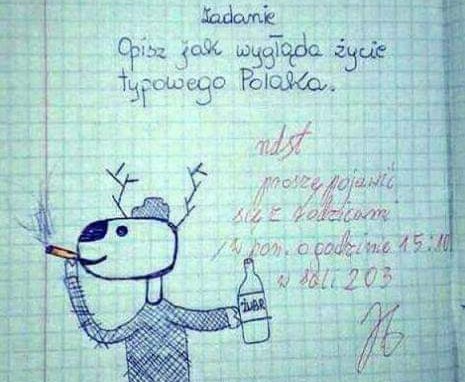 Zadanie
Opisz jak wygłąda życie
typowego Polaka.
ndst
proszę pojawić
się z rodzicami
w pon. o godzinie 15:10
w sali 203
ŻUBR